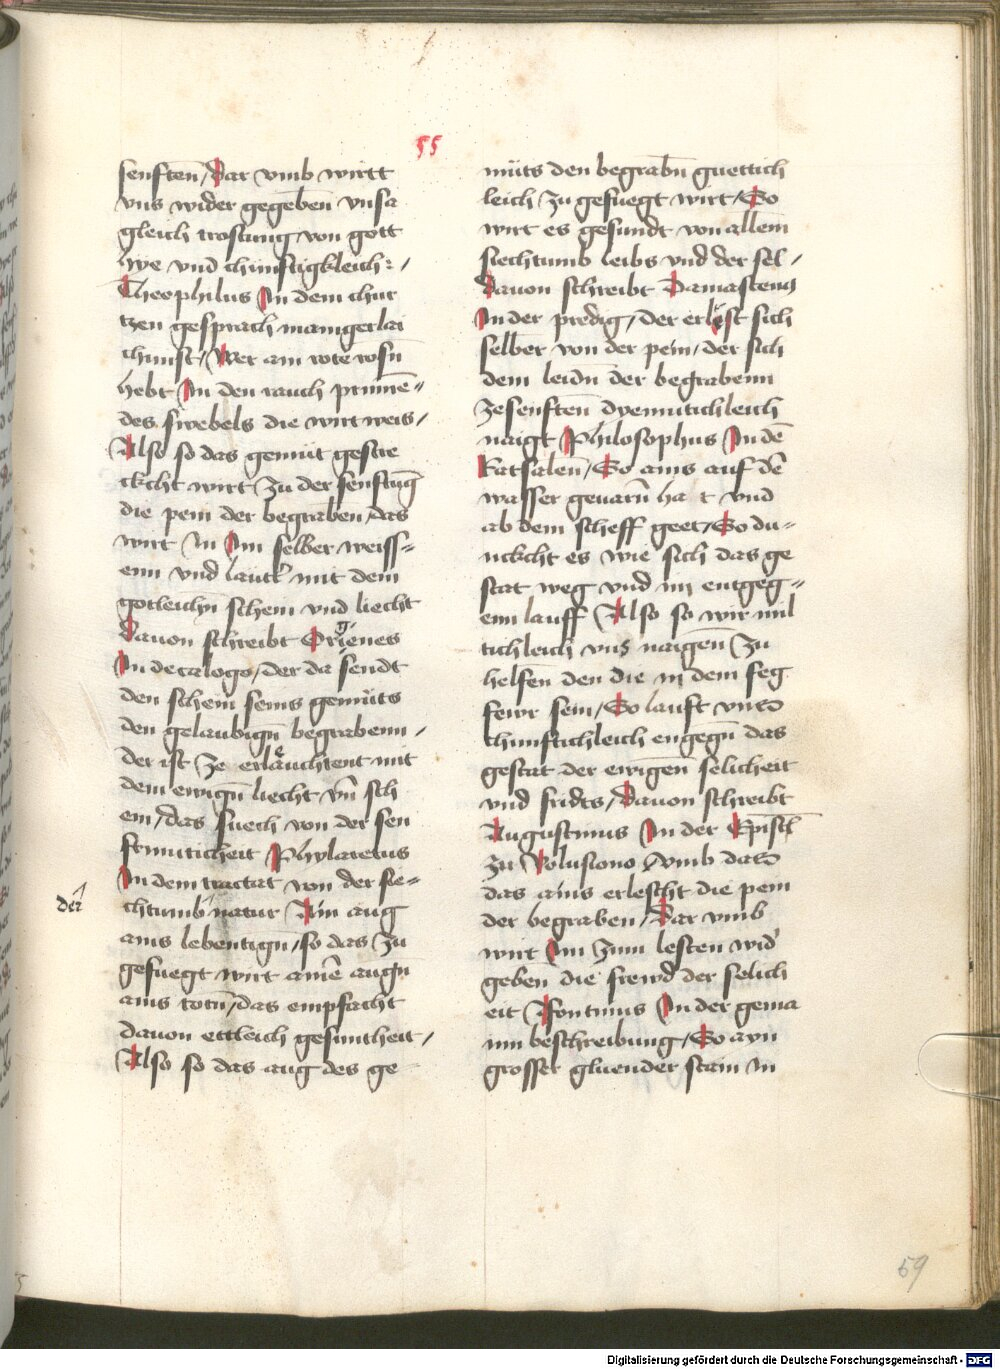 55
senften̄ / Dar vmb wirtt
vns wider gegeben̄ vnsa
gleich trostung von gott
hye vnd chunftigkleich : /
Theophilus In dem chur
tzen gesprach manigerlai
chunst / Wer ain rote rosn̄
hebt In den rauch prinnē=
des swebels die wirt weis /
Also so das gemüt gestre
ckcht wirt / zu der senftūg
die pein der begraben / das
wirt In Im selber weiss=
enn vnd lautt̄ mit dem
gotleichn̄ schein vnd liecht
Dauon schreibt Origenes
In decalogo / der da sendt
den schein seins gemüts
den gelaubign̄ begrabenn /
der ist ze erlaͤuchtent mit
dem ewign̄ liecht vn̄ sech
em / das fuech von der sen
ftmuticheit Phylaretus
In dem tractat von der sie=
der
chtumb natur Ain aug
ains lebentign̄ / so das zu
gefuegt wirt ainē augn̄
ains totn̄ / das empfacht
dauon ettleich gesuntheit /
Also so das aug des ge
müts den begrabn̄ guettich
leich zu gefuegt wirt / So
wirt es gesundt von allem
siechtumb leibs vnd der sel /
Dauon schreibt Damascenus
In der predig / der erlöst sich
selber von der pein / der sich
dem leidn̄ der begrabenn
zesenften̄ dyemutichleich
naigt Philosophus In dē
Ratsalen̄ / So ains auf dē
wasser geuarn̄ hat vnd
ab dem scheff geet / So du=
nckcht es wie sich das ge
stat weg vnd im entgeg=
enn lauff Also so wir mil
tichleich vns naigen̄ zu
helfen̄ den die in dem feg
fewr sein / So lauft vns
chunftichleich engegn̄ das
gestat der ewigen̄ selicheit
vnd frids / Dauon schreibt
Augustinus In der Epistl̄
zu Volusiono Dvmb das
das ains erlescht die pein
der begraben / Dar vmb
wirt Im zum lesten wid̄
geben die frewd der selich
eit Afontinus In der gema
inn beschreibung / So ayn
grosser gluender stain in
59
Digitalisierung gefördert durch die Deutsche Forschungsgemeinschaft - DFG